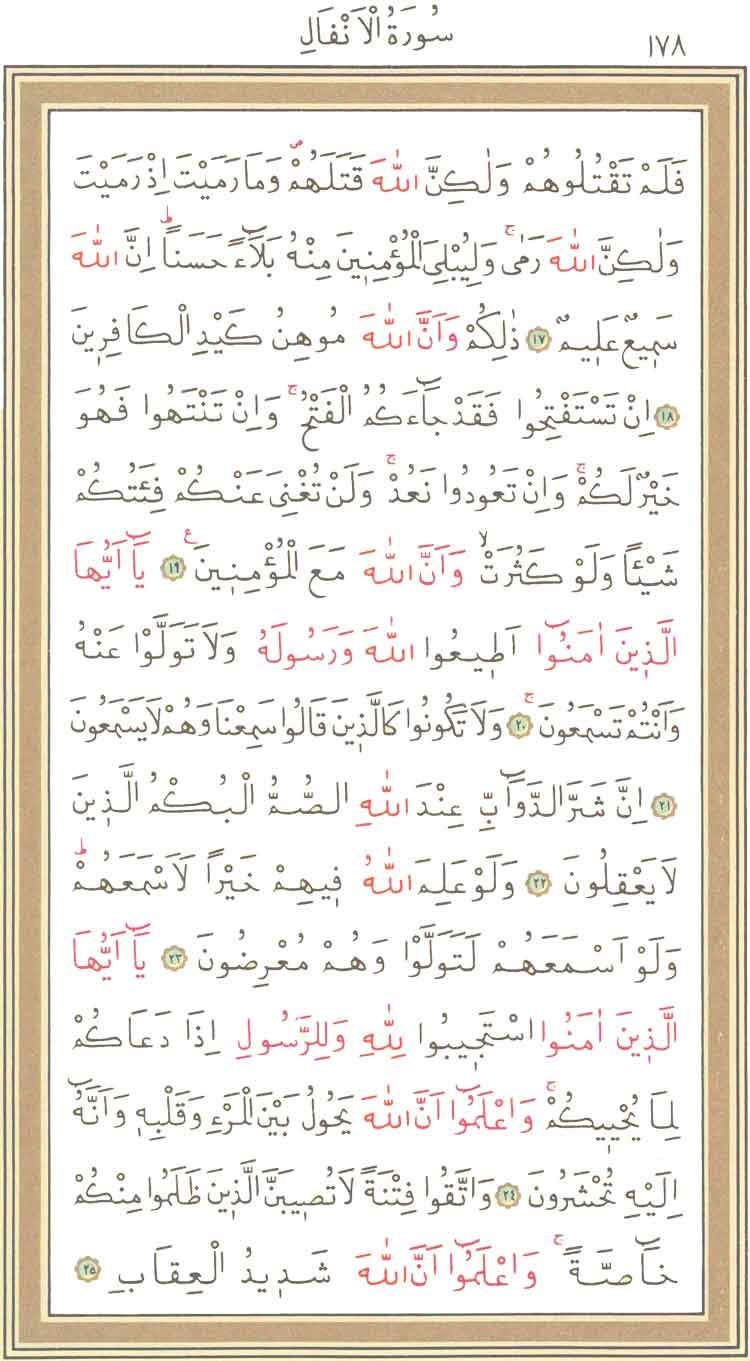 ١٧٨
سُورَةُ الْاَنْفَالِ
فَلَمْ تَقْتُلُوهُمْ وَلٰكِنَّ اللّٰهَ قَتَلَهُمْۖ وَمَا رَمَيْتَ اِذْ رَمَيْتَ
وَلٰكِنَّ اللّٰهَ رَمٰىۚ وَلِيُبْلِيَ الْمُؤْمِن۪ينَ مِنْهُ بَلَٓاءً حَسَناًۜ اِنَّ اللّٰهَ
سَم۪يعٌ عَل۪يمٌ ﴿١٧﴾ ذٰلِكُمْ وَاَنَّ اللّٰهَ مُوهِنُ كَيْدِ الْكَافِر۪ينَ
﴿١٨﴾ اِنْ تَسْتَفْتِحُوا فَقَدْ جَٓاءَكُمُ الْفَتْحُۚ وَاِنْ تَنْتَهُوا فَهُوَ
خَيْرٌ لَكُمْۚ وَاِنْ تَعُودُوا نَعُدْۚ وَلَنْ تُغْنِيَ عَنْكُمْ فِئَتُكُمْ
شَيْـٔاً وَلَوْ كَثُرَتْۙ وَاَنَّ اللّٰهَ مَعَ الْمُؤْمِن۪ينَ۟ ﴿١٩﴾ يَٓا اَيُّهَا
الَّذ۪ينَ اٰمَنُٓوا اَط۪يعُوا اللّٰهَ وَرَسُولَهُ وَلَا تَوَلَّوْا عَنْهُ
وَاَنْتُمْ تَسْمَعُونَۚ ﴿٢٠﴾ وَلَا تَكُونُوا كَالَّذ۪ينَ قَالُوا سَمِعْنَا وَهُمْ لَا يَسْمَعُونَ
﴿٢١﴾ اِنَّ شَرَّ الدَّوَٓابِّ عِنْدَ اللّٰهِ الصُّمُّ الْبُكْمُ الَّذ۪ينَ
لَا يَعْقِلُونَ ﴿٢٢﴾ وَلَوْ عَلِمَ اللّٰهُ ف۪يهِمْ خَيْراً لَاَسْمَعَهُمْۜ
وَلَوْ اَسْمَعَهُمْ لَتَوَلَّوْا وَهُمْ مُعْرِضُونَ ﴿٢٣﴾ يَٓا اَيُّهَا
الَّذ۪ينَ اٰمَنُوا اسْتَج۪يبُوا لِلّٰهِ وَلِلرَّسُولِ اِذَا دَعَاكُمْ
لِمَا يُحْي۪يكُمْۚ وَاعْلَمُٓوا اَنَّ اللّٰهَ يَحُولُ بَيْنَ الْمَرْءِ وَقَلْبِه۪ وَاَنَّهُٓ
اِلَيْهِ تُحْشَرُونَ ﴿٢٤﴾ وَاتَّقُوا فِتْنَةً لَا تُص۪يبَنَّ الَّذ۪ينَ ظَلَمُوا مِنْكُمْ
خَٓاصَّةًۚ وَاعْلَمُٓوا اَنَّ اللّٰهَ شَد۪يدُ الْعِقَابِ ﴿٢٥﴾